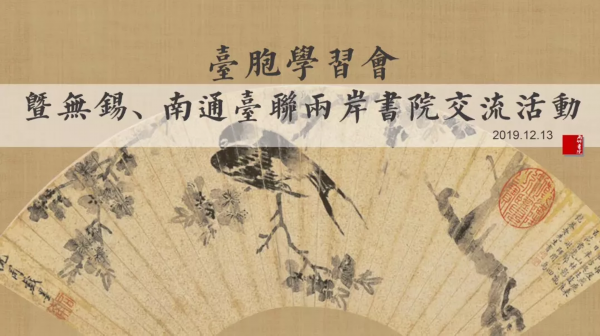 臺胞學習會
暨無錫、南通臺聯兩岸書院交流活動
2019.12.13